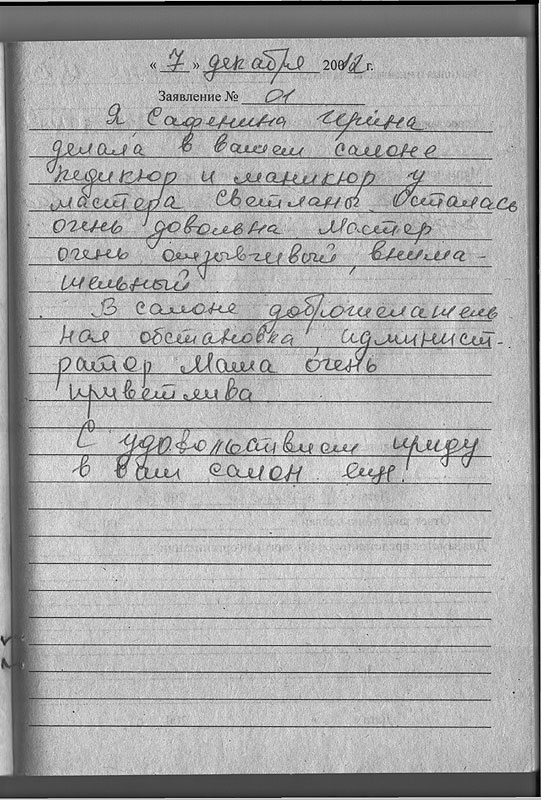 « 7 » декабря 2012 г.
Заявление № 01
Я, Сафенина Ирина
делала в вашем салоне
педикюр и маникюр у
мастера Светланы. Осталась
очень довольна. Мастер
очень отзывчивый, внима-
тельный.
В салоне доброжелатель
ная обстановка, админист-
ратор Маша очень
приветлива
С удовольствием приду
в ваш салон еще.